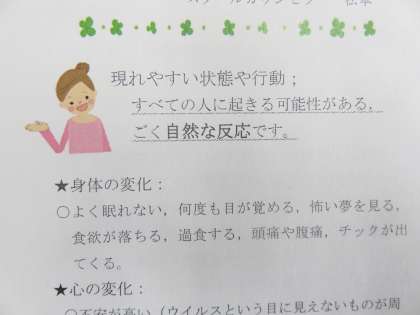 スクールカウンセラー
現れやすい状態や行動；
すべての人に起きる可能性がある，
ごく自然な反応です。
★身体の変化：
○よく眠れない，何度も目が覚める，怖い夢を見る，
食欲が落ちる，過食する，頭痛や腹痛，チックが出
てくる。
★心の変化：
○不安が高い（ウイルスという目に見えないものが周